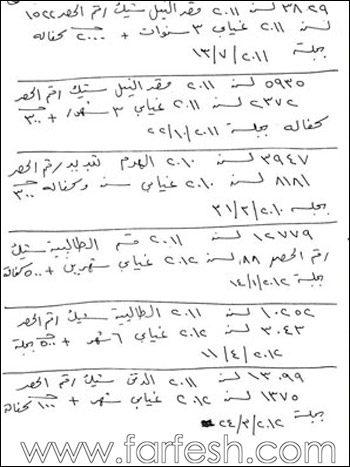 ٣٨٢٩ لسنة ٢٠١١ قصر النيل شيك رقم الحصر ١٥٢٢
لسنة ٢٠١١ غيابي ٣ سنوات + ٢٠٠٠ كفاله
جلسة ١٣/٧/٢٠١١
٥٩٣٥ لسنة ٢٠١١ قصر النيل شيك رقم الحصر
٢٣٧٢ لسنة ٢٠١١ غيابي ٣ شهور + ٣٠٠
كفاله جلسة ٢٢/١٠/٢٠١١
٣٩٤٧ لسنة ٢٠١٠ الهرم تبديد رقم الحصر
٨١٨١ لسنة ٢٠١٠ غيابي سنه وكفاله ٣٠٠
جلسة ٣١/٣/٢٠١٠
١٢٧٧٩ لسنة ٢٠١١ قسم الطالبية شيك
رقم الحصر ٨٨ لسنة ٢٠١٢ غيابي شهرين + ٥٠٠ كفاله
جلسة ١٤/١/٢٠١٢
١٠٢٥٢ لسنة ٢٠١١ الطالبية شيك رقم الحصر
٣٠٤٣ لسنة ٢٠١٢ غيابي ٦ شهور + ٥٠٠ جلسة
١١/٤/٢٠١٢
١٣٠٩٩ لسنة ٢٠١١ الدقى شيك رقم الحصر
١٣٧٥ لسنة ٢٠١٢ غيابي شهر + ١٠٠ كفالة
جلسة ٢٤/٣/٢٠١٢
www.farfesh.com